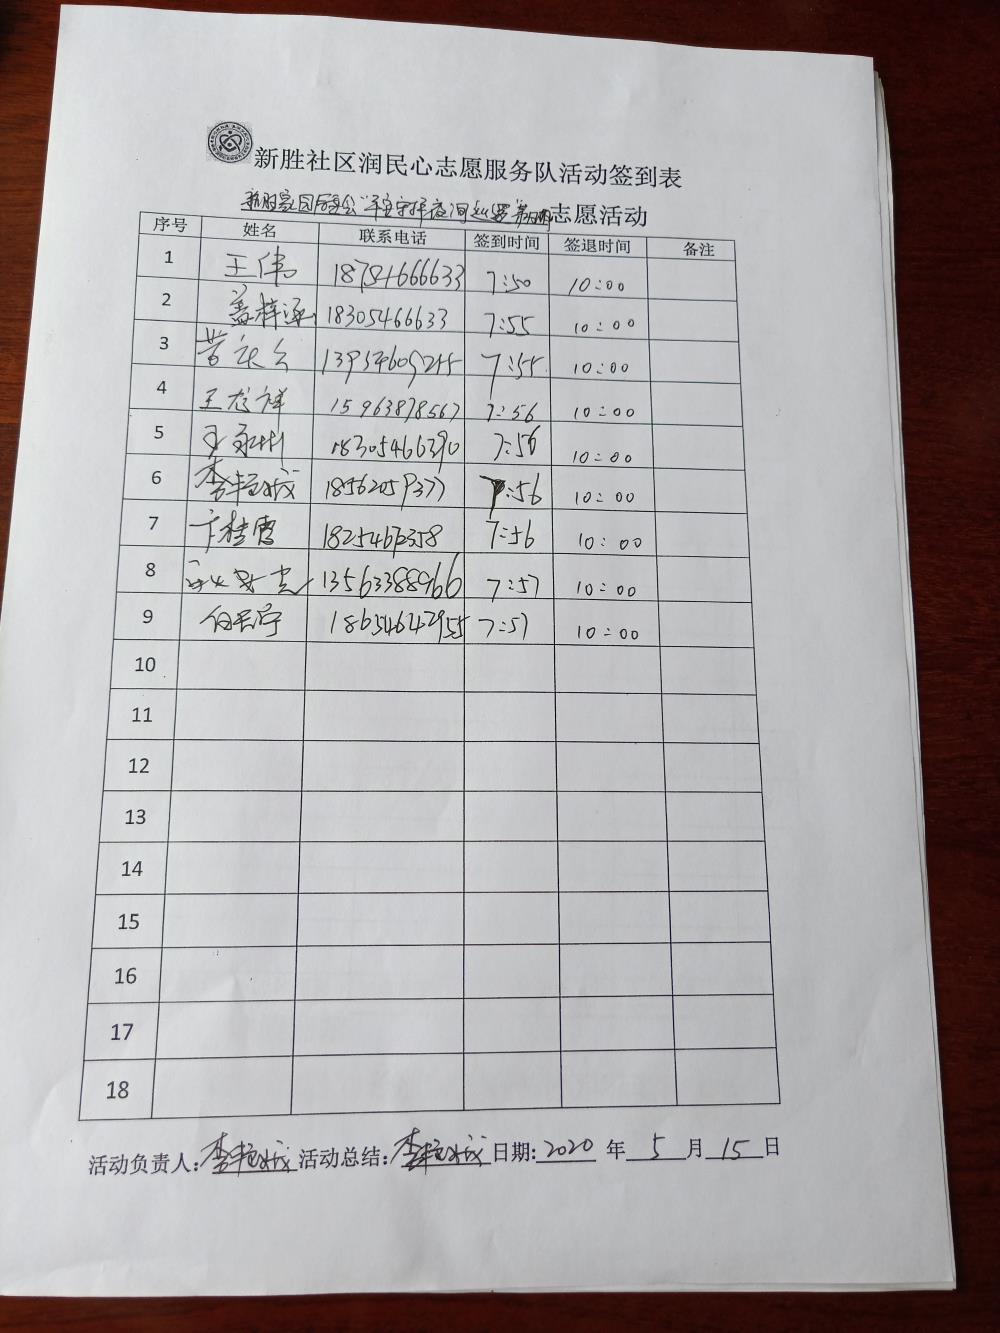 新胜社区润民心志愿服务队活动签到表
志愿活动
序号 姓名 联系电话 签到时间 签退时间 备注
1 王伟 18781666633 7:50 10:00
2 盖梓涵 18305466633 7:55 10:00
3 7:55 10:00
4 王志祥 15963878567 7:56 10:00
5 18305466390 7:56 10:00
6 李艳成 18562059377 7:56 10:00
7 卞桂雪 7:56 10:00
8 13563388966 7:57 10:00
9 18654642955 7:57 10:00
10
11
12
13
14
15
16
17
18
活动负责人:李艳成 活动总结:李艳成 日期:2020 年 5 月 15 日